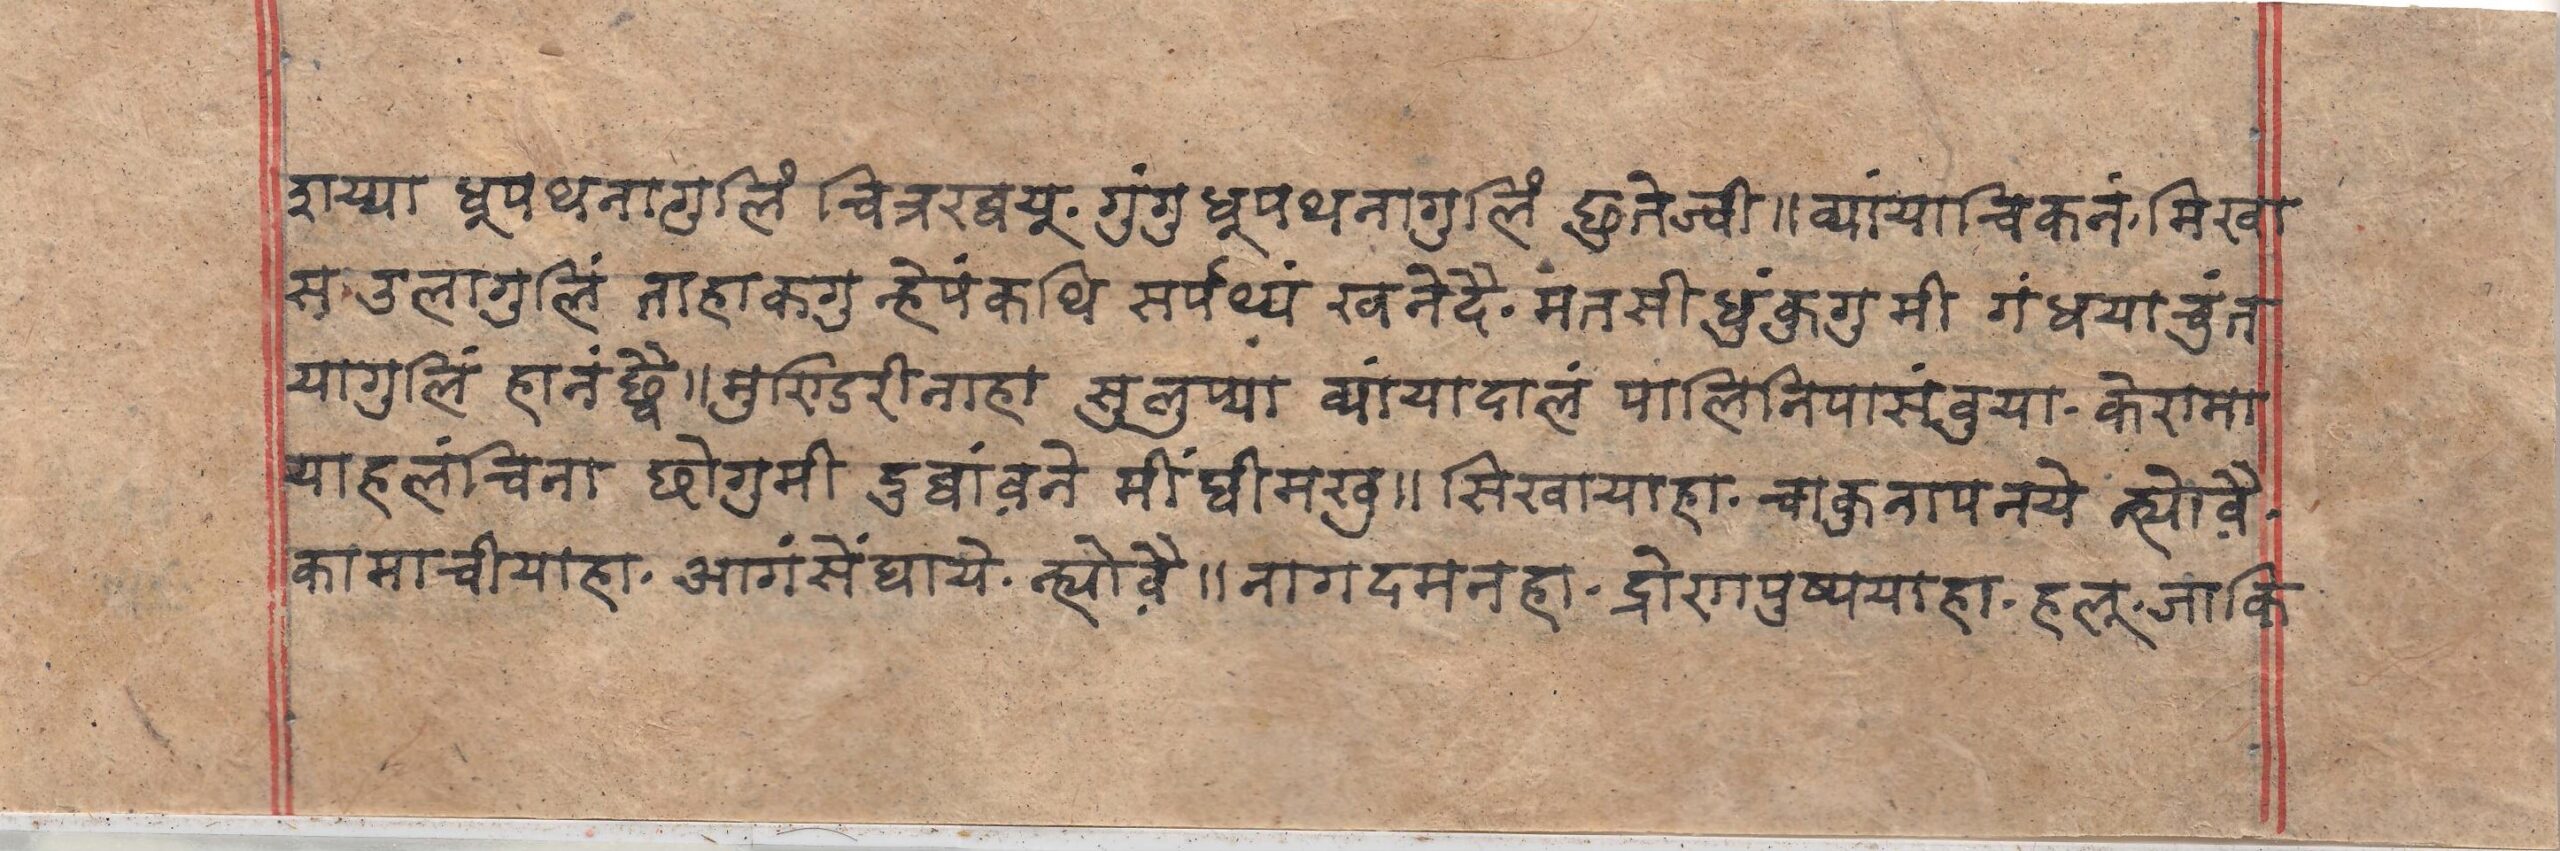 शय्या धूपथनागुलिं चित्ररव्वयू. गुंगुधूपथनागुलिं छुतेज्वी॥ व्यांयाचिकनं. मिखा
स उलागुलिं ताहाकगु न्हेपंकथि सर्पथ्यं खनेदै. मंतसीधुंकुगु मी गंधयाचुंत
यागुलिं हानंछ्वै॥ मुण्डिरीनाहा सुलुप्यां व्यांयादालं पालिनिपासंवुया. केरामा
याहलंचिना छोगुमी दुव्वांव़ने मीं घीमखु॥ सिखायाहा. चाकुनापनये ल्ह्योव़ै.
कामाचीयाहा. आगंसेंघाये. ल्ह्योव़ै॥ नागदमनहा. द्रोणपुष्पयाहा. हलू. जाकि